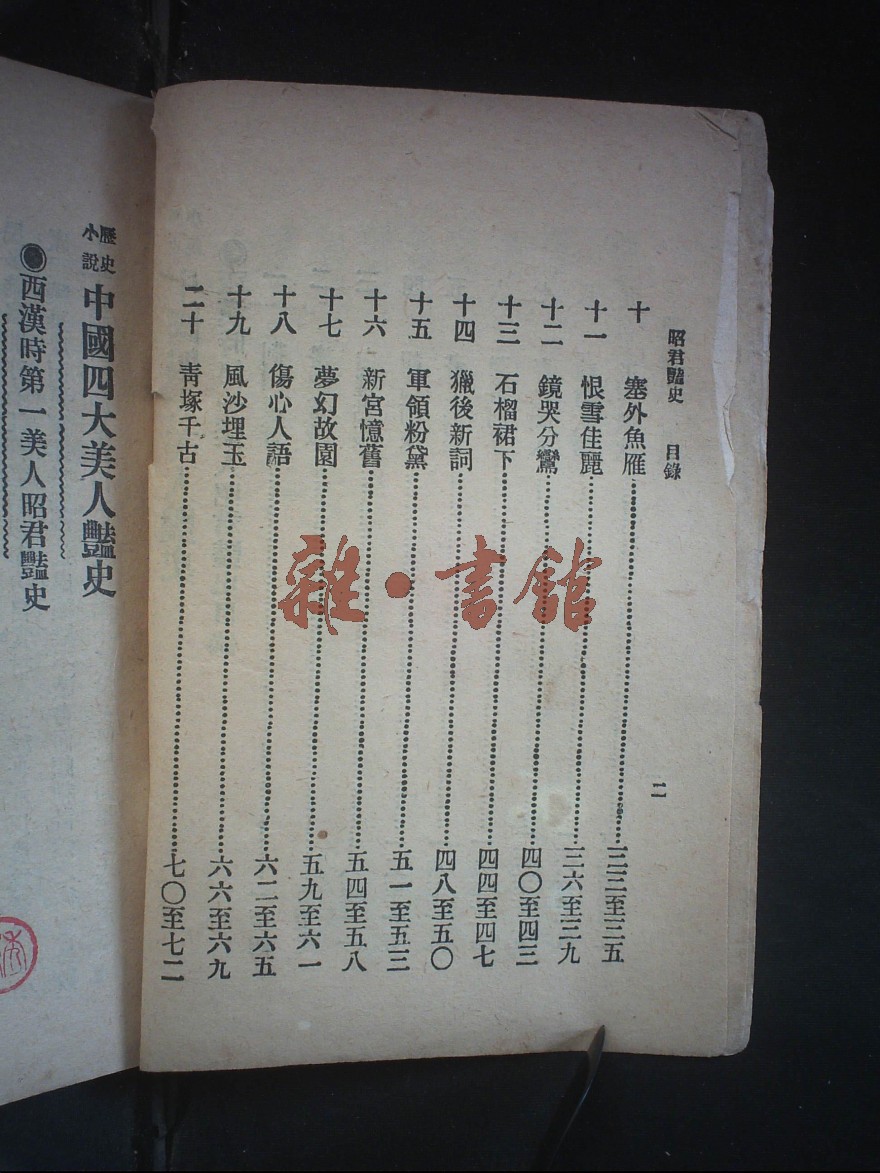 昭君豔史 目錄
二
十 塞外魚雁……三三至三五
十一 恨雪佳麗……三六至三九
十二 鏡哭分鸞……四〇至四三
十三 石榴裙下……四四至四七
十四 獵後新詞……四八至五〇
十五 軍領粉黛……五一至五三
十六 新宮憶舊……五四至五八
十七 夢幻故園……五九至六一
十八 傷心人語……六二至六五
十九 風沙埋玉……六六至六九
二十 靑塚千古……七〇至七二
歷史小說 中國四大美人豔史
◉西漢時第一美人昭君豔史
雜·書館